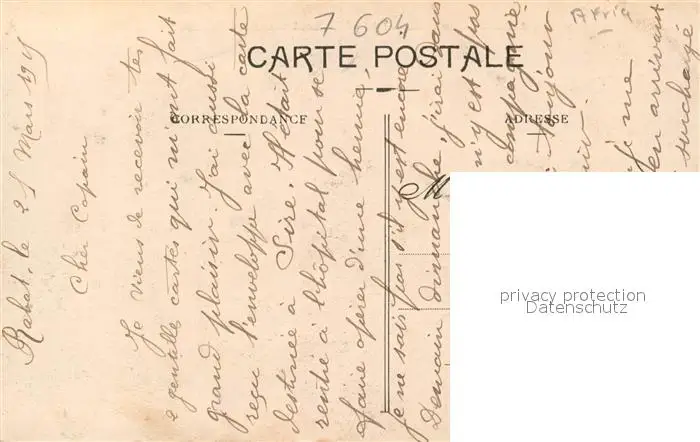 7 604
Afria
CARTE POSTALE
CORRESPONDANCE
ADRESSE
M
Rabat, le 21 Mars 1915
Cher Copain
Je viens de recevoir tes
2 gentilles cartes qui m'ont fait
grand plaisir. J'ai aussi
reçu l'enveloppe avec la carte
destinée à Sire. Il était
rentré à l'hôpital pour se
faire opérer d'une hernie,
je ne sais pas s'il y est encore
Demain dimanche, j'irai
n'y est pas
compagnie
toujour
je me
en arrivant
privacy protection
Datenschutz